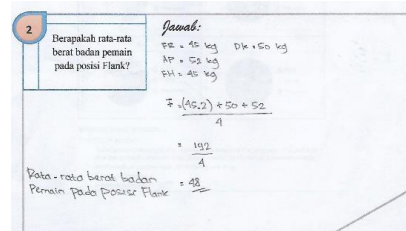 2
Berapakah rata-rata
berat badan pemain
pada posisi Flank?
Jawab:
FR = 45 kg DK = 50 kg
AP = 52 kg
FH = 45 kg
x̄ = (45.2) + 50 + 52
4
= 192
4
= 48
Rata-rata berat badan
Pemain pada posisi Flank